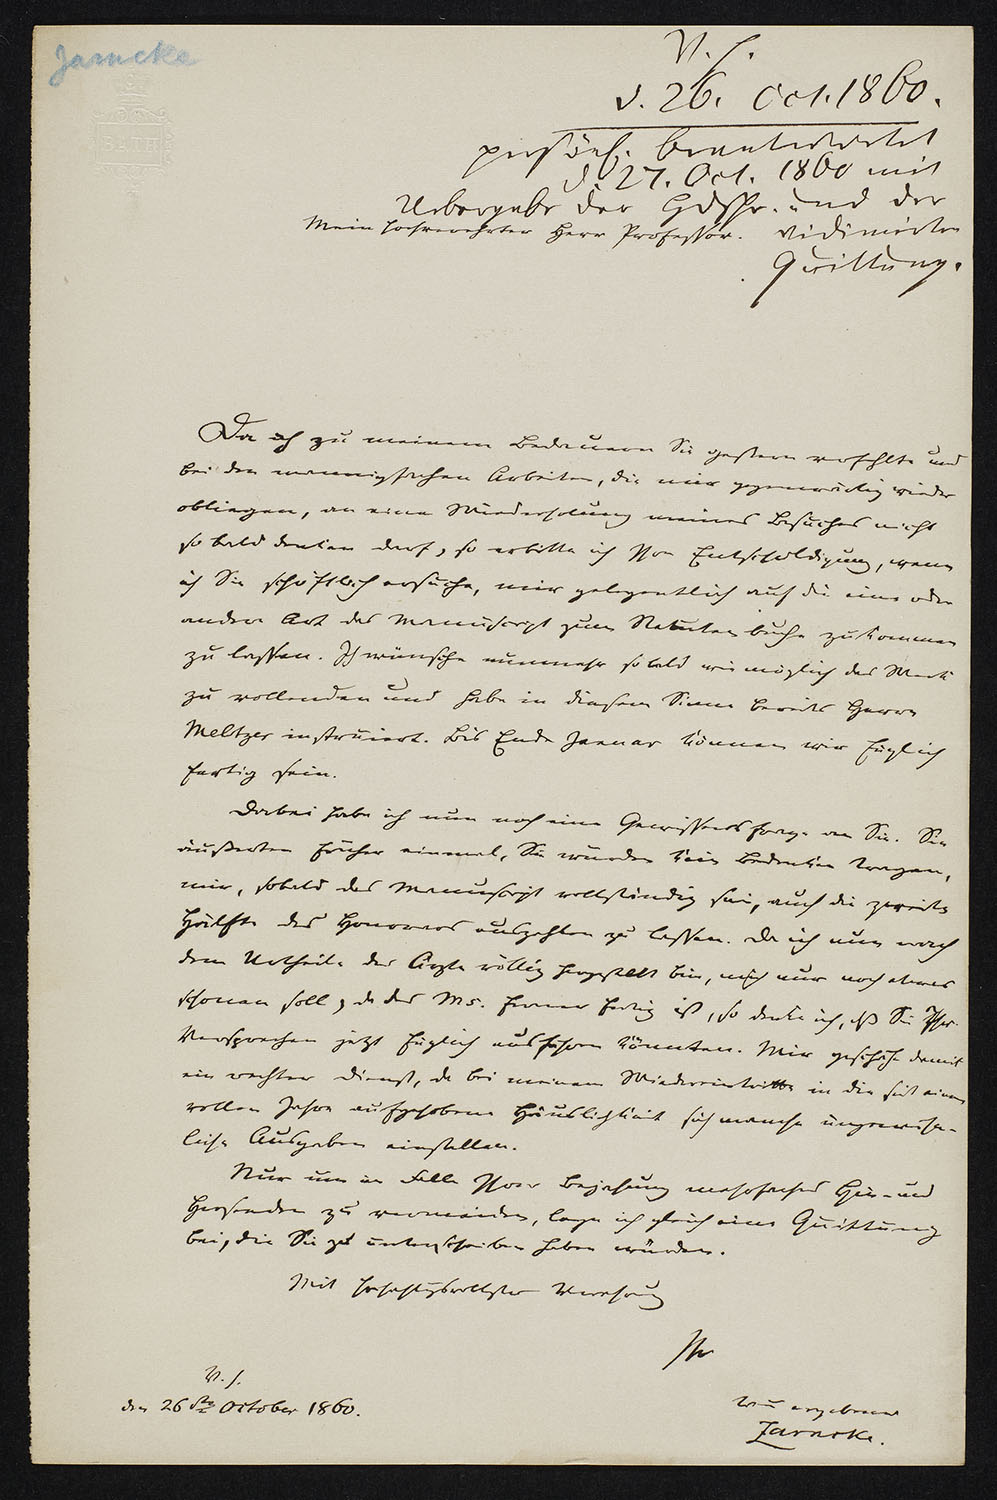 Zarncke
BATH
V. s.
d. 26. Oct. 1860.
persönl. beantwortet
d. 27. Oct. 1860 mit
Uebergabe der Hdschr. und der
Mein hochverehrter Herr Professor. vidimirten
Quittung.
Da ich zu meinem Bedauern Sie gestern verfehlte und
bei den mannigfachen Arbeiten, die mir gegenwärtig wieder
obliegen, an eine Wiederholung meines Besuches nicht
so bald denken darf, so erbitte ich Ihre Entschuldigung, wenn
ich Sie schriftlich ersuche, mir gelegentlich auf die eine oder
andere Art das Manuscript zum Statutenbuche zukommen
zu lassen. Ich wünsche nunmehr sobald wie möglich das Werk
zu vollenden und habe in diesem Sinne bereits Herrn
Meltzer instruiert. Bis Ende Januar können wir füglich
fertig sein.
Dabei habe ich nun noch eine Gewissensfrage an Sie. Sie
äußerten früher einmal, Sie würden kein Bedenken tragen,
mir, sobald das Manuscript vollständig sei, auch die zweite
Hälfte des Honorars auszahlen zu lassen. Da ich nun nach
dem Urtheile der Ärzte völlig hergestellt bin, mich nur noch etwas
schonen soll, da das Ms. ferner fertig ist, so denke ich, daß Sie Ihr
Versprechen jetzt füglich ausführen könnten. Mir geschähe damit
ein rechter Dienst, da bei meinem Wiedereintritte in die seit einem
vollen Jahre aufgehobene Häuslichkeit sich manche ungewöhn-
liche Ausgaben einstellen.
Nur um im Falle Ihrer Bejahung mehrfaches Hin- und
Hersenden zu vermeiden, lege ich gleich eine Quittung
bei, die Sie zu unterschreiben haben würden.
Mit hochachtungsvollster Verehrung
Ihr
V. s.
den 26sten October 1860.
treu ergebener
Zarncke.